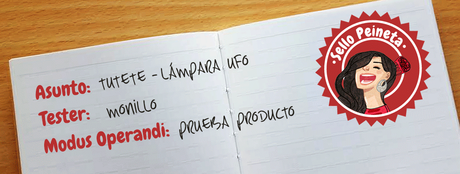 Sello Peineta
Asunto: TUTETE - LÁMPARA UFO
Tester: MONILLO
Modus Operandi: PRUEBA PRODUCTO